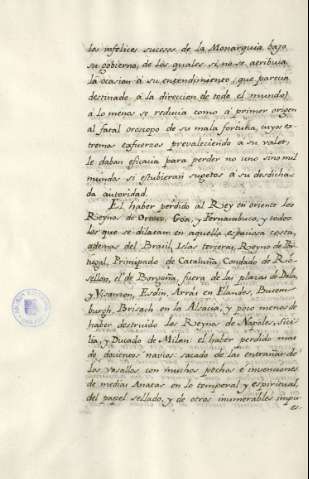 los infelices sucesos de la Monarquia bajo
su gobierno, de los quales si no se atribuia
la ocasion á su entendimiento (que parecia
destinado á la direccion de todo el mundo)
á lo menos se reducia como á primer origen
al fatal oroscopo de su mala fortuna, cuyos es-
tremos esfuerzos prevaleciendo a su valor,
le daban eficacia para perder no uno sino mil
mundos si estubieran sugetos á su desdicha-
da autoridad.
El haber perdido al Rey en oriente los
Reynos de Ormuz, Goa, y Fernambuco, y todos
los que se dilatan en aquella espaciosa costa,
ademas del Brasil, Islas terceras, Reyno de Por-
tugal, Principado de Cataluña, Condado de Rose-
llon, el de Borgoña, fuera de las plazas de Dola,
y Visanzon, Esdin, Arrás en Flandes,
Brisach en la Alsacia, y poco menos de
haber destruido los Reynos de Napoles, Sici-
lia, y Ducado de Milan: el haber perdido mas
de docientos navios: sacado de las entrañas de
los vasallos con muchos pechos e invenciones
de medias Anatas en lo temporal y espiritual,
del papel sellado, y de otros innumerables impu
es.